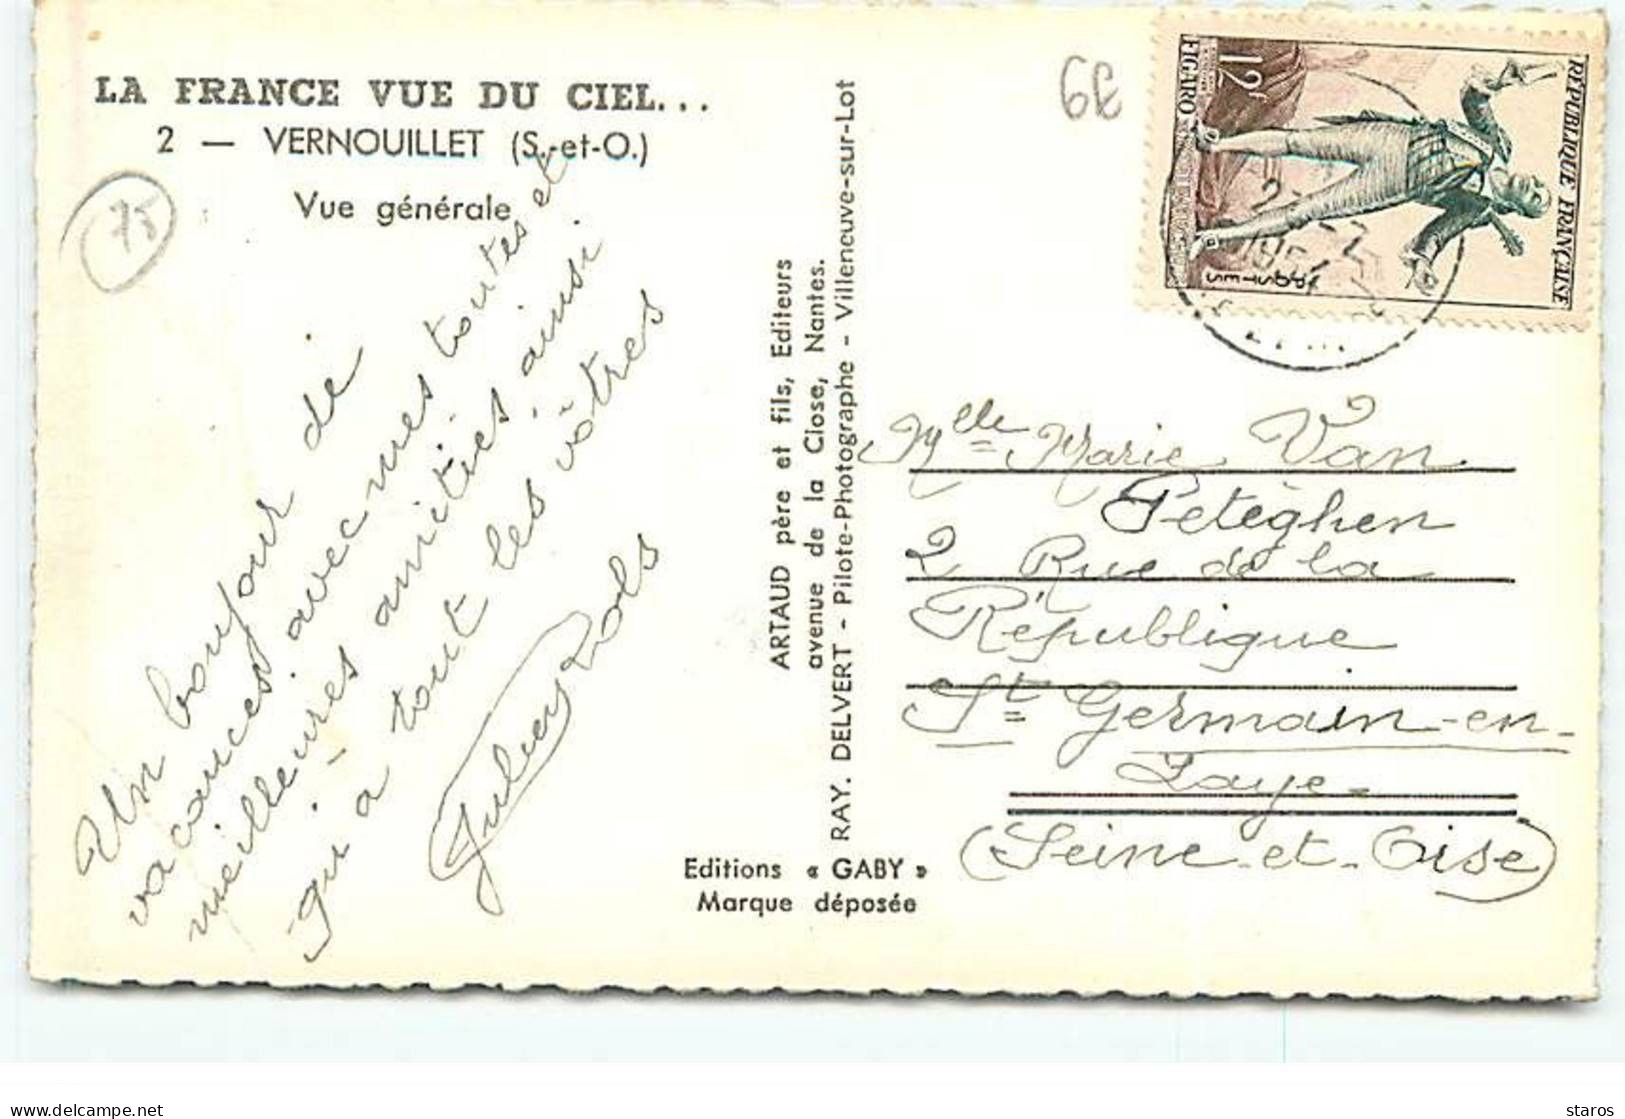 LA FRANCE VUE DU CIEL...
2 — VERNOUILLET (S.-et-O.)
Vue générale
75
Un bonjour de
vacances avec mes toutes et
meilleures amitiés ainsi
qu'à tout les vôtres
Rols
ARTAUD père et fils, Editeurs
avenue de la Close, Nantes.
RAY. DELVERT - Pilote-Photographe - Villeneuve-sur-Lot
Editions « GABY »
Marque déposée
6E
REPUBLIQUE FRANÇAISE
12F
FIGARO
POSTES
Melle Marie Van
Peteghen
2 Rue de la
République
St Germain-en-
Laye-
(Seine-et-Oise)
delcampe.net
staros